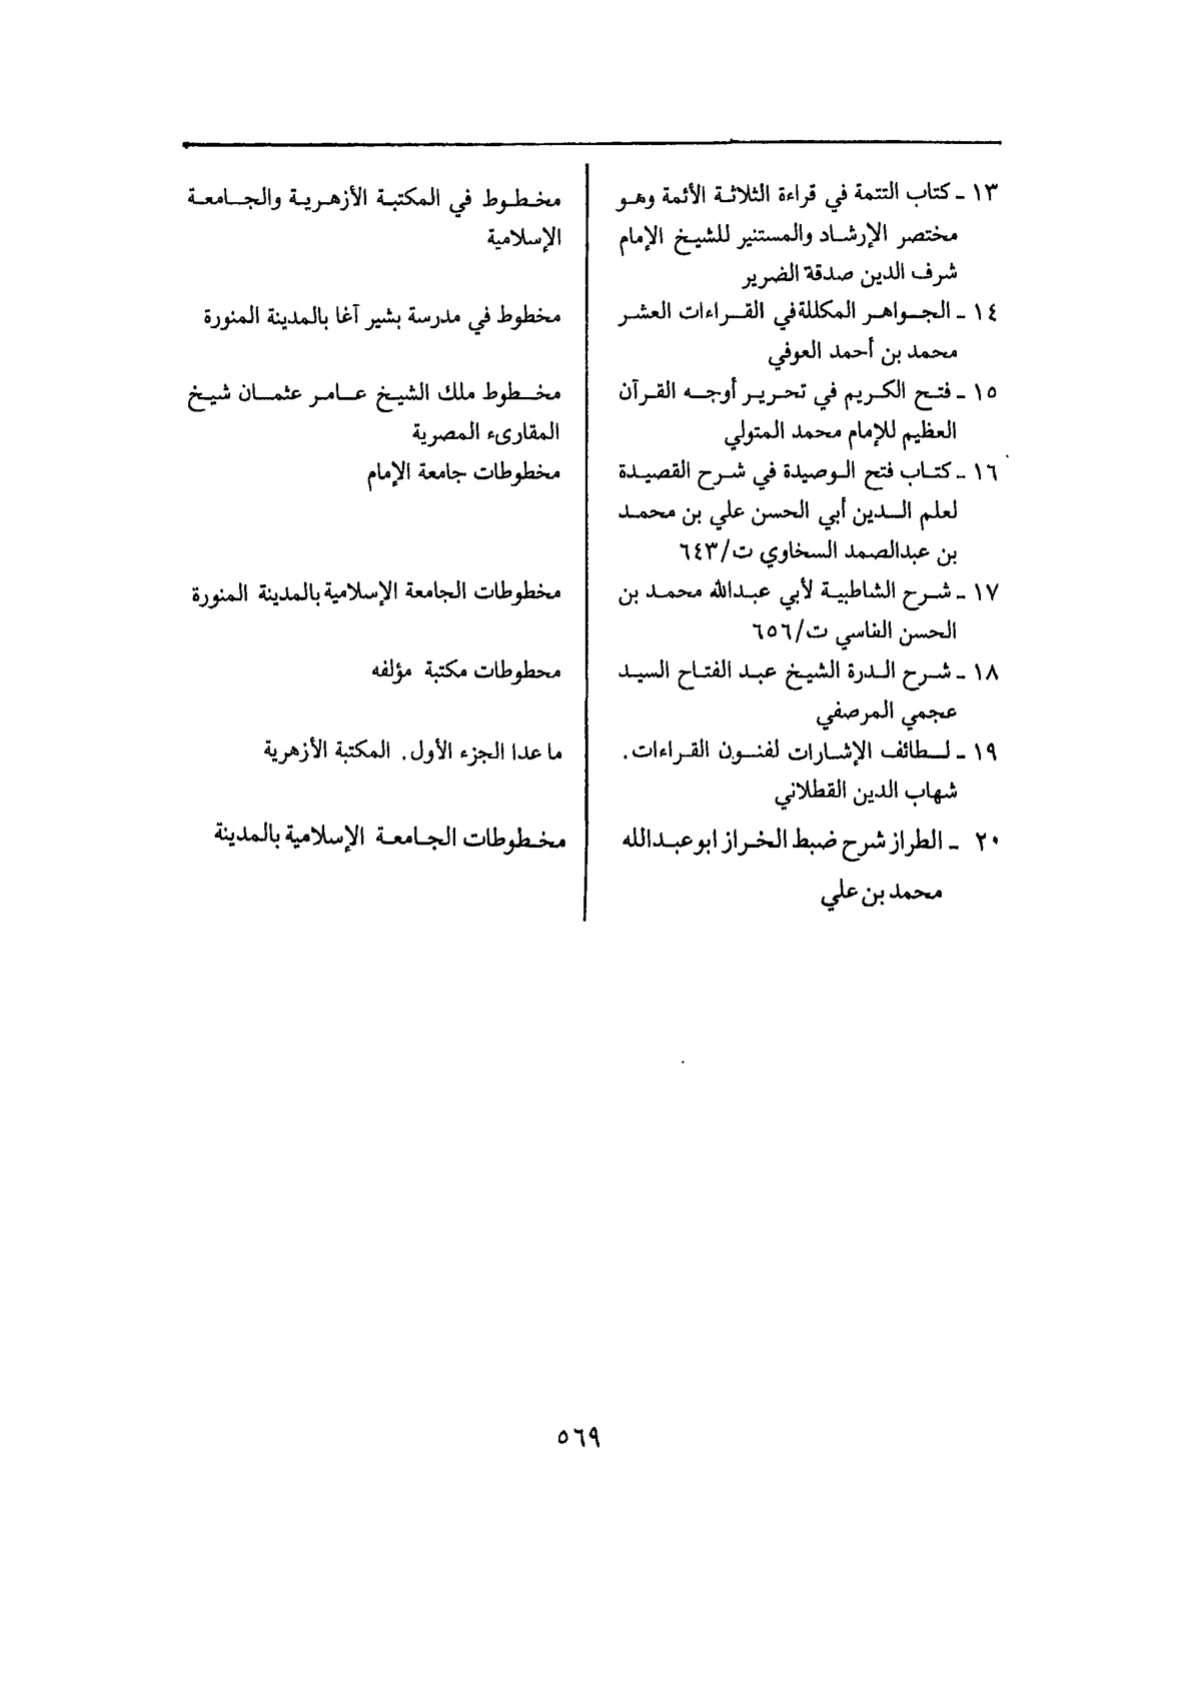 ١٣ ـ كتاب التتمة في قراءة الثلاثة الأئمة وهو
مختصر الإرشاد والمستنير للشيخ الإمام
شرف الدين صدقة الضرير
مخطوط في المكتبة الأزهرية والجامعة
الإسلامية
١٤ ـ الجواهر المكللة في القراءات العشر
محمد بن أحمد العوفي
مخطوط في مدرسة بشير آغا بالمدينة المنورة
١٥ ـ فتح الكريم في تحرير أوجه القرآن
العظيم للإمام محمد المتولي
مخطوط ملك الشيخ عامر عثمان شيخ
المقارىء المصرية
١٦ ـ كتاب فتح الوصيدة في شرح القصيدة
لعلم الدين أبي الحسن علي بن محمد
بن عبدالصمد السخاوي ت/٦٤٣
مخطوطات جامعة الإمام
١٧ ـ شرح الشاطبية لأبي عبدالله محمد بن
الحسن الفاسي ت/٦٥٦
مخطوطات الجامعة الإسلامية بالمدينة المنورة
١٨ ـ شرح الدرة الشيخ عبد الفتاح السيد
عجمي المرصفي
محطوطات مكتبة مؤلفه
١٩ ـ لطائف الإشارات لفنون القراءات.
شهاب الدين القطلاني
ما عدا الجزء الأول. المكتبة الأزهرية
٢٠ ـ الطراز شرح ضبط الخراز ابو عبدالله
محمد بن علي
مخطوطات الجامعة الإسلامية بالمدينة
٥٦٩